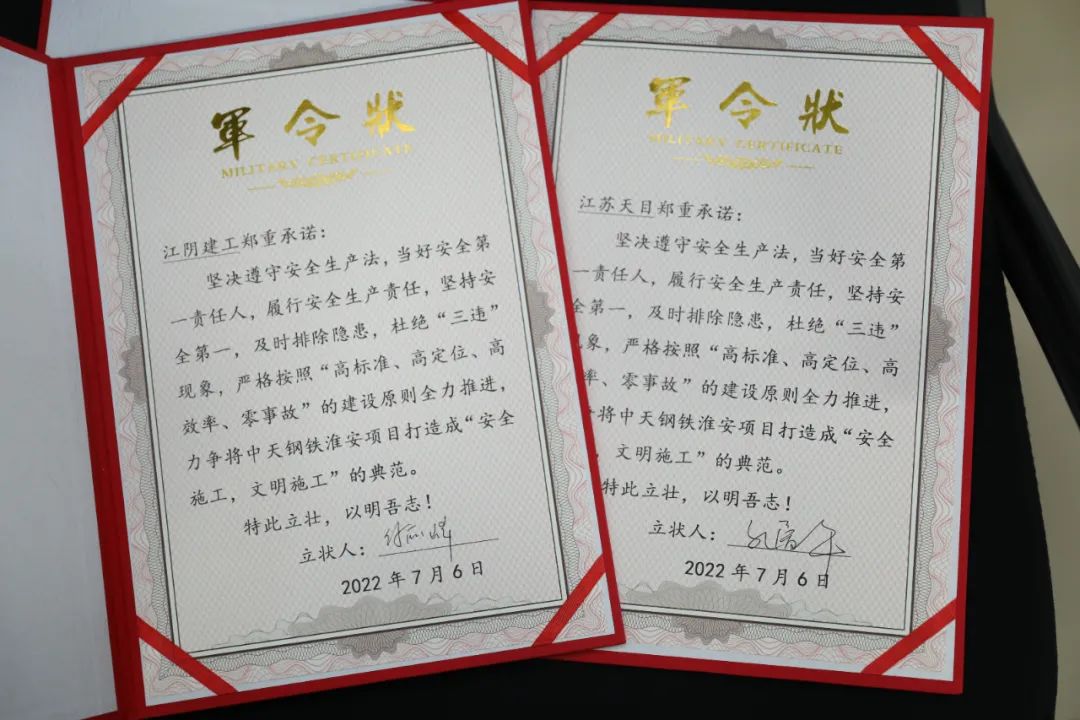 軍令狀
MILITARY CERTIFICATE
江阴建工郑重承诺：
坚决遵守安全生产法，当好安全第
一责任人，履行安全生产责任，坚持安
全第一，及时排除隐患，杜绝“三违”
现象，严格按照“高标准、高定位、高
效率、零事故”的建设原则全力推进，
力争将中天钢铁淮安项目打造成“安全
施工，文明施工”的典范。
特此立壮，以明吾志！
立状人：
2022年7月6日
軍令狀
MILITARY CERTIFICATE
江苏天目郑重承诺：
坚决遵守安全生产法，当好安全第
一责任人，履行安全生产责任，坚持安
全第一，及时排除隐患，杜绝“三违”
象，严格按照“高标准、高定位、高
率、零事故”的建设原则全力推进，
将中天钢铁淮安项目打造成“安全
，文明施工”的典范。
特此立壮，以明吾志！
立状人：
2022年7月6日